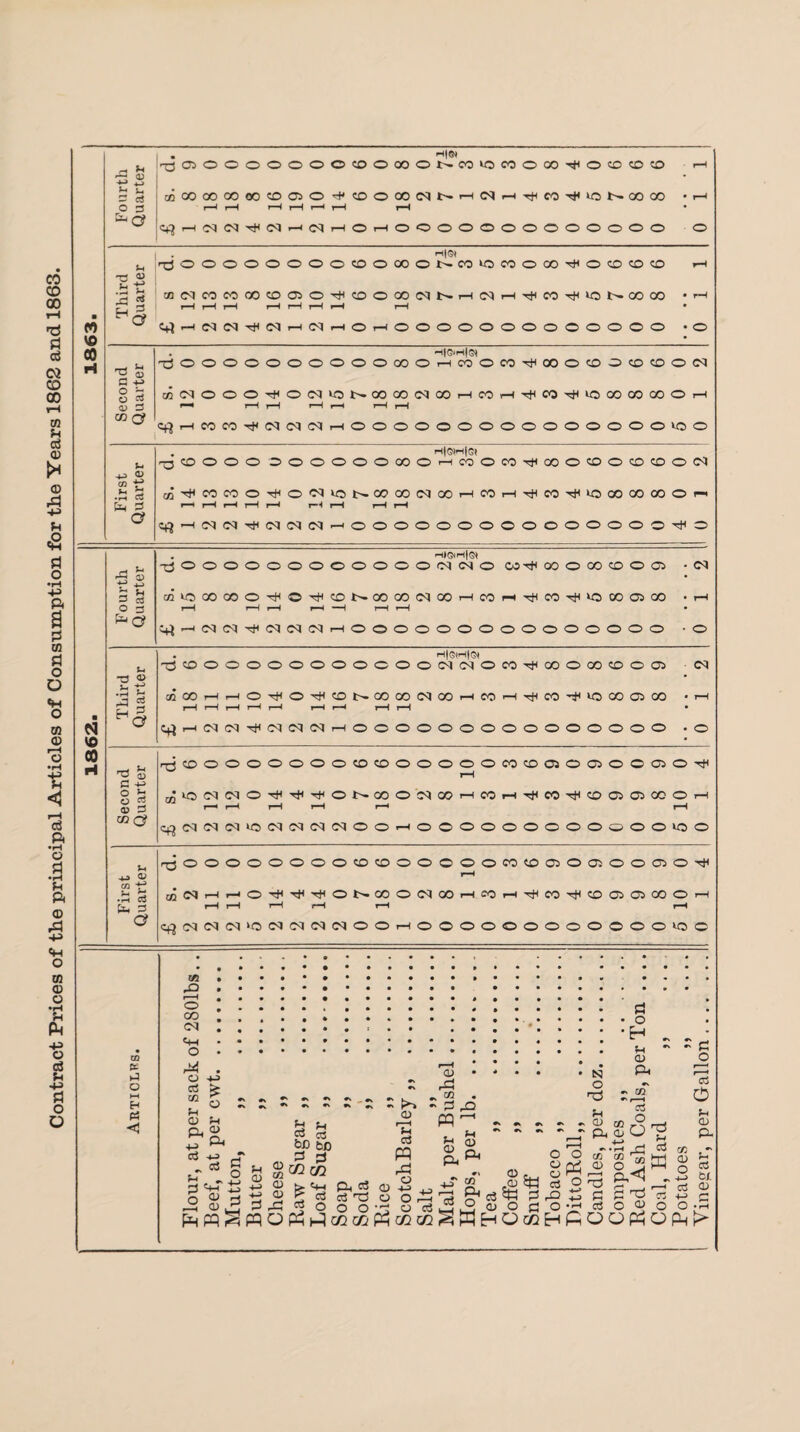 Contract Prices of the principal Articles of Consumption for the Years 1862 and 1863.
1862. 1863.
ARTICLES. First Quarter Second Quarter Third Quarter Fourth Quarter First Quarter Second Quarter Third Quarter Fourth Quarter
£ s. d. £ s. d. £ s. d. £ s. d. £ s. d. £ s. d. £ s. d. £ s. d.
Flour, at per sack of 280lbs. 2 2 0 2 5 6 1 18 6 1 15 0 1 14 6 1 12 0 1 12 0 1 8 9
Beef, at per cwt. 2 11 0 2 12 0 2 11 0 2 8 0 2 13 0 3 0 0 2 13 0 2 18 0
Mutton, „ 2 11 0 2 12 0 2 11 0 2 8 0 2 13 0 3 0 0 2 13 0 2 18 0
Butter „ 5 0 0 5 0 0 4 10 0 4 10 0 4 10 0 4 10 0 4 8 0 4 8 0
Cheese „ 2 14 0 2 14 0 2 14 0 2 14 0 2 14 0 2 14 0 2 16 0 2 16 0
Raw Sugar „ 2 4 0 2 4 0 2 0 0 2 0 0 2 0 0 2 0 0 1 19 0 1 19 0
Loaf Sugar „ 2 14 0 2 14 0 2 14 0 2 14 0 2 12 0 2 12 0 2 10 0 2 10 0
Soap „ 2 0 0 2 0 0 1 16 0 1 16 0 1 15 0 1 15 0 1 14 0 1 14 0
Soda „ 0 7 6 0 7 6 0 7 0 0 7 0 0 7 0 0 7 0 0 6 6 0 6 6
Rice „ 0 18 6 0 18 6 0 18 0 0 18 0 0 18 0 0 18 0 1 0 0 1 0 0
Scotch Barley „ 1 0 0 1 0 0 0 18 0 0 18 0 0 18 8 0 18 8 0 18 8 0 18 8
Salt „ 0 2 0 0 2 0 0 2 0 0 2 0 0 2 0 0 2 0 0 2 0 0 2 0
Malt, per Bushel 0 8 0 0 8 0 0 8 2½ 0 8 2½ 0 8 1½ 0 8 1½ 0 7 7½ 0 7 7½
Hops, per lb. 0 1 0 0 1 0 0 1 2½ 0 1 2½ 0 1 3½ 0 1 3½ 0 1 3 0 1 3
Tea „ 0 3 10 0 3 10 0 3 0 0 3 0 0 3 0 0 3 0 0 2 5 0 2 5
Coffee „ 0 1 3 0 1 3 0 1 3 0 1 3 0 1 3 0 1 3 0 1 3 0 1 3
Snuff „ 0 4 6 0 4 6 0 4 4 0 4 4 0 4 4 0 4 4 0 4 0 0 4 0
Tobacco „ 0 3 9 0 3 9 0 3 8 0 3 8 0 3 8 0 3 8 0 3 8 0 3 8
Ditto Roll „ 0 4 0 0 4 0 0 4 0 0 4 0 0 4 0 0 4 0 0 4 4 0 4 4
Candles, per doz. 0 6 9 0 6 9 0 5 8 0 5 8 0 5 6 0 5 6 0 5 0 0 5 0
Composites „ 0 9 0 0 9 0 0 8 6 0 8 6 0 8 0 0 8 0 0 7 6 0 7 6
Red Ash Coals, per Ton 0 9 0 0 9 0 0 9 0 0 9 0 0 8 6 0 8 6 0 8 6 0 8 6
Coal, Hard „ 0 8 9 0 8 9 0 8 9 0 8 9 0 8 6 0 8 6 0 8 6 0 8 6
Potatoes „ 5 10 0 5 10 0 . . . . 4 0 0 5 0 0 . . . .
Vinegar, per Gallon 0 1 4 0 1 4 0 1 2 0 1 2 0 1 2 0 1 2 0 1 1 0 1 1